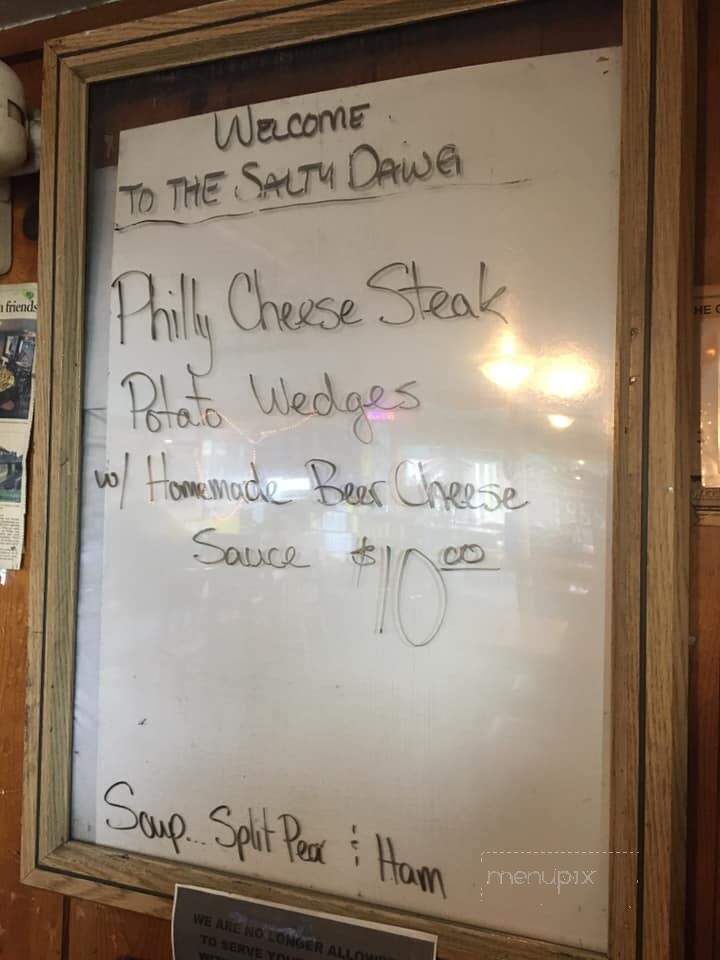 WELCOME
TO THE SALTY DAWG
Philly Cheese Steak
Potato Wedges
w/ Homemade Beer Cheese
Sauce $10.00
Soup... Split Pea & Ham
menupix
friends
HE
WE ARE NO LONGER
TO SERVE